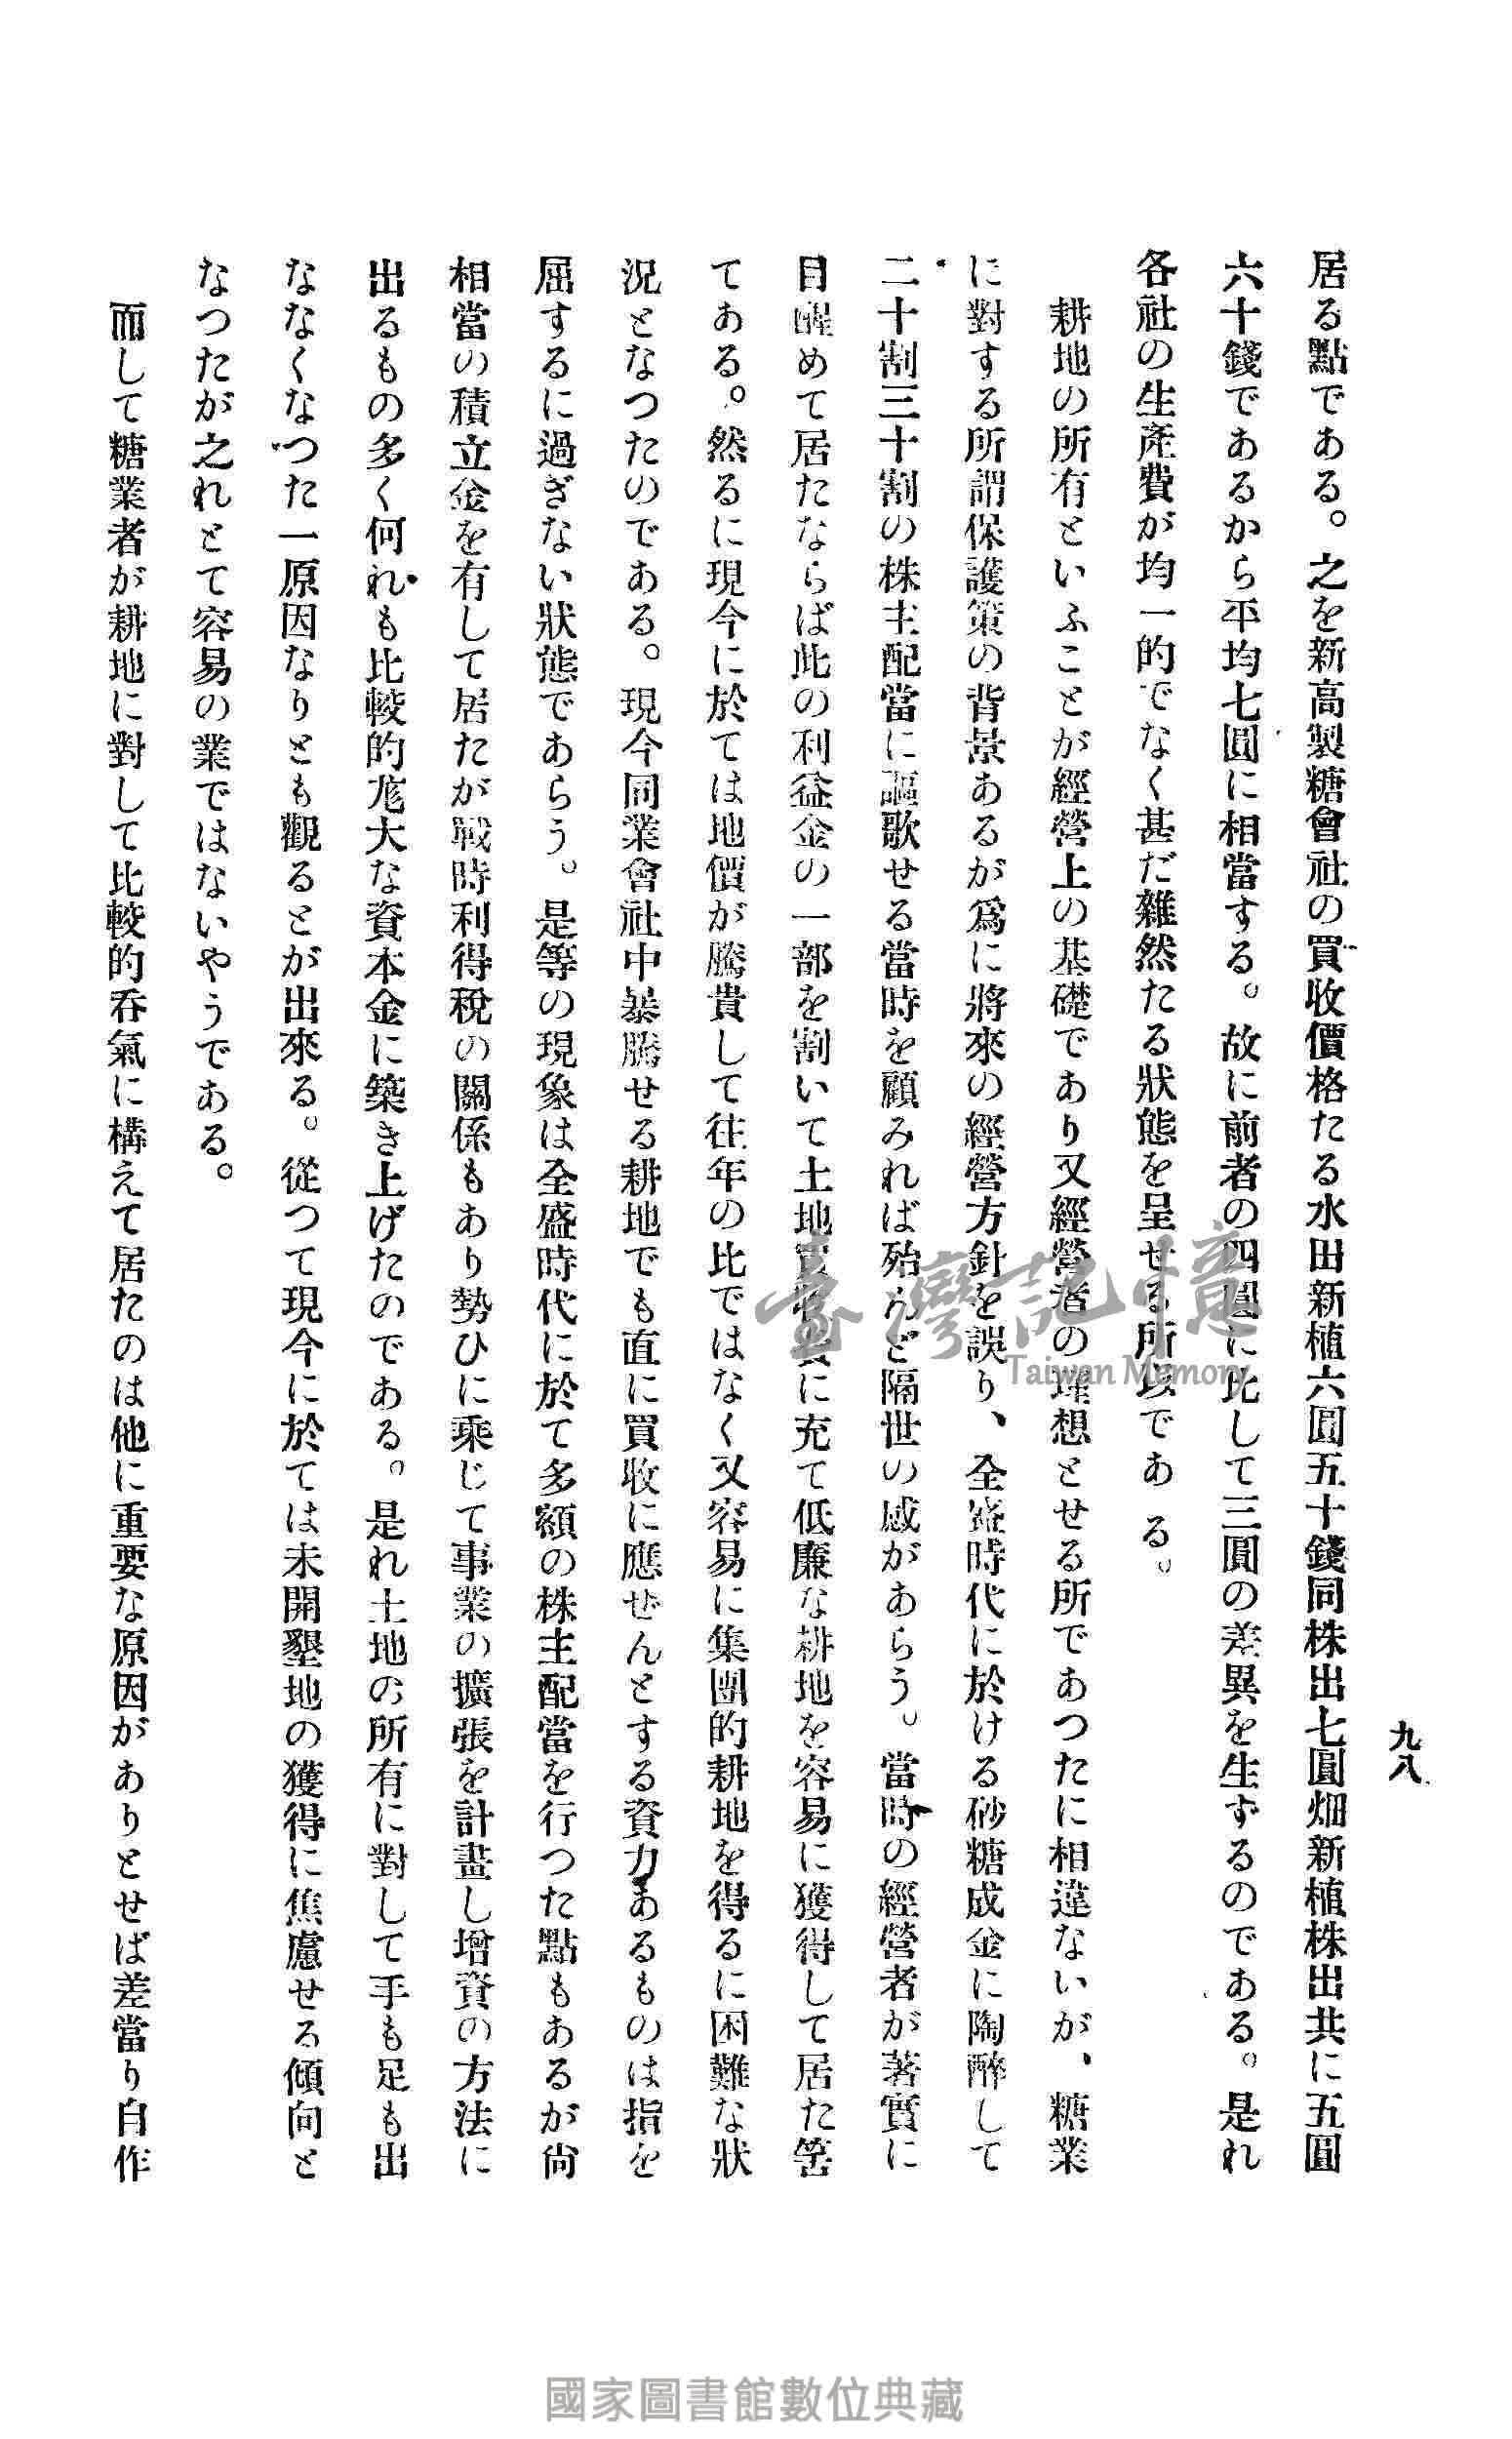 九八
居る點である。之を新高製糖會社の買收價格たる水田新植六圓五十錢同株出七圓畑新植株出共に五圓
六十錢であるから平均七圓に相當する。故に前者の四圓に比して三圓の差異を生ずるのである。是れ
各社の生產費が均一的でなく甚だ雜然たる狀態を呈せる所以である。
耕地の所有といふことが經營上の基礎であり又經營者の理想とせる所であつたに相違ないが、糖業
に對する所謂保護策の背景あるが爲に將來の經營方針を誤り、全盛時代に於ける砂糖成金に陶醉して
二十割三十割の株主配當に謳歌せる當時を顧みれば殆んど隔世の感があらう。當時の經營者が著實に
目醒めて居たならば此の利益金の一部を割いて土地買收費に充て低廉な耕地を容易に獲得して居た筈
てある。然るに現今に於ては地價が騰貴して往年の比ではなく又容易に集團的耕地を得るに困難な狀
況となつたのである。現今同業會社中暴騰せる耕地でも直に買收に應ぜんとする資力あるものは指を
屈するに過ぎない狀態であらう。是等の現象は全盛時代に於て多額の株主配當を行つた點もあるが尙
相當の積立金を有して居たが戰時利得稅の關係もあり勢ひに乘じて事業の擴張を計畫し增資の方法に
出るもの多く何れも比較的尨大な資本金に築き上げたのである。是れ土地の所有に對して手も足も出
ななくなつた一原因なりとも觀るとが出來る。從つて現今に於ては未開墾地の獲得に焦慮せる傾向と
なつたが之れとて容易の業ではないやうである。
而して糖業者が耕地に對して比較的呑氣に構えて居たのは他に重要な原因がありとせば差當り自作
臺灣記憶
Taiwan Memory
國家圖書館數位典藏